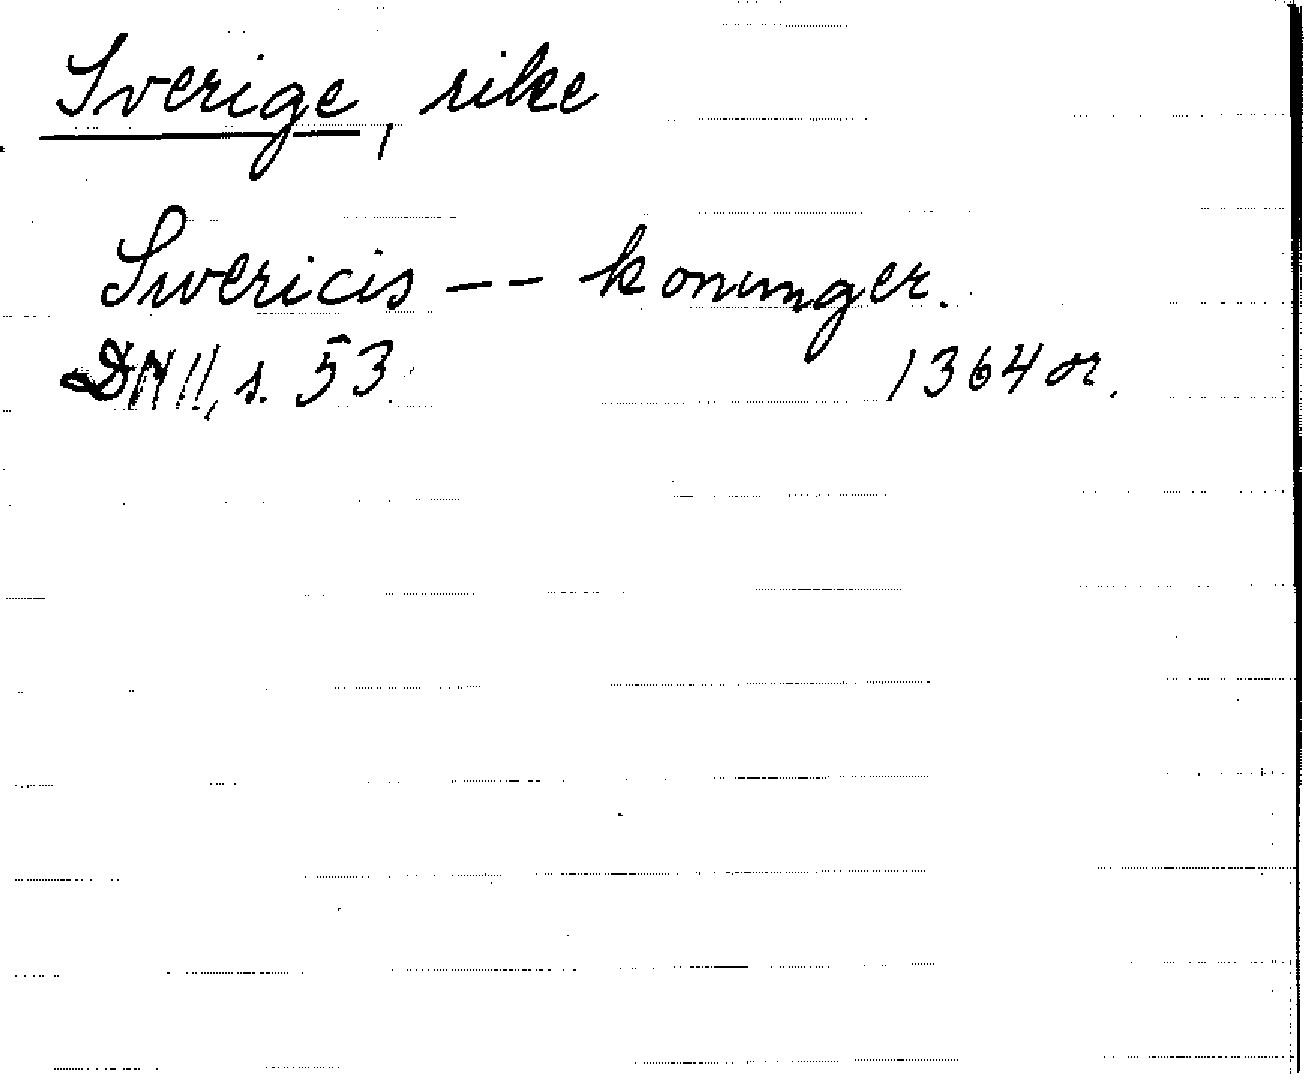 Sverige, rike
Swericis -- konunger.
DN II, s. 53. 1364 or.